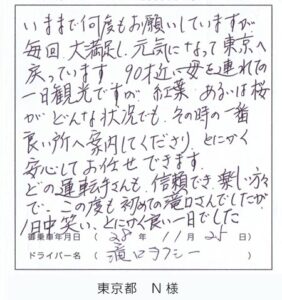 いままで何度もお願いしていますが
毎回、大満足し、元気になって東京へ
戻っています。90才近い母を連れての
一日観光ですが、紅葉、あるいは桜
がどんな状況でも、その時の一番
良い所へ案内してくださり、とにかく
安心してお任せできます。
どの運転手さんも、信頼でき、楽しい方々
で、この度も初めての滝口さんでしたが、
1日中笑い、とにかく良い一日でした
御乗車年月日 ( 28 年 11 月 25 日)
ドライバー名 ( 滝口タクシー )
東京都 N様